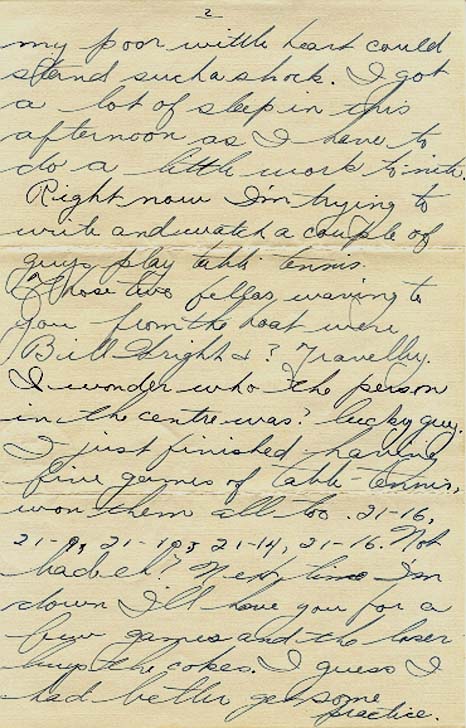 2
my poor wittle heart could
stand such a shock. I got
a lot of sleep in this
afternoon as I have to
do a little work tonite.
Right now I'm trying to
write and watch a couple of
guys play table tennis.
Those two fellas, waving to
you from the boat were
Bill Wright & ? Travelby.
I wonder who the person
in the centre was? lucky guy.
I just finished having
five games of table-tennis,
won them all too. 21-16,
21-9, 21-19, 21-14, 21-16. Not
bad eh? Next time I'm
down I'll have you for a
few games and the loser
buys the cokes. I guess I
had better get some
practice.